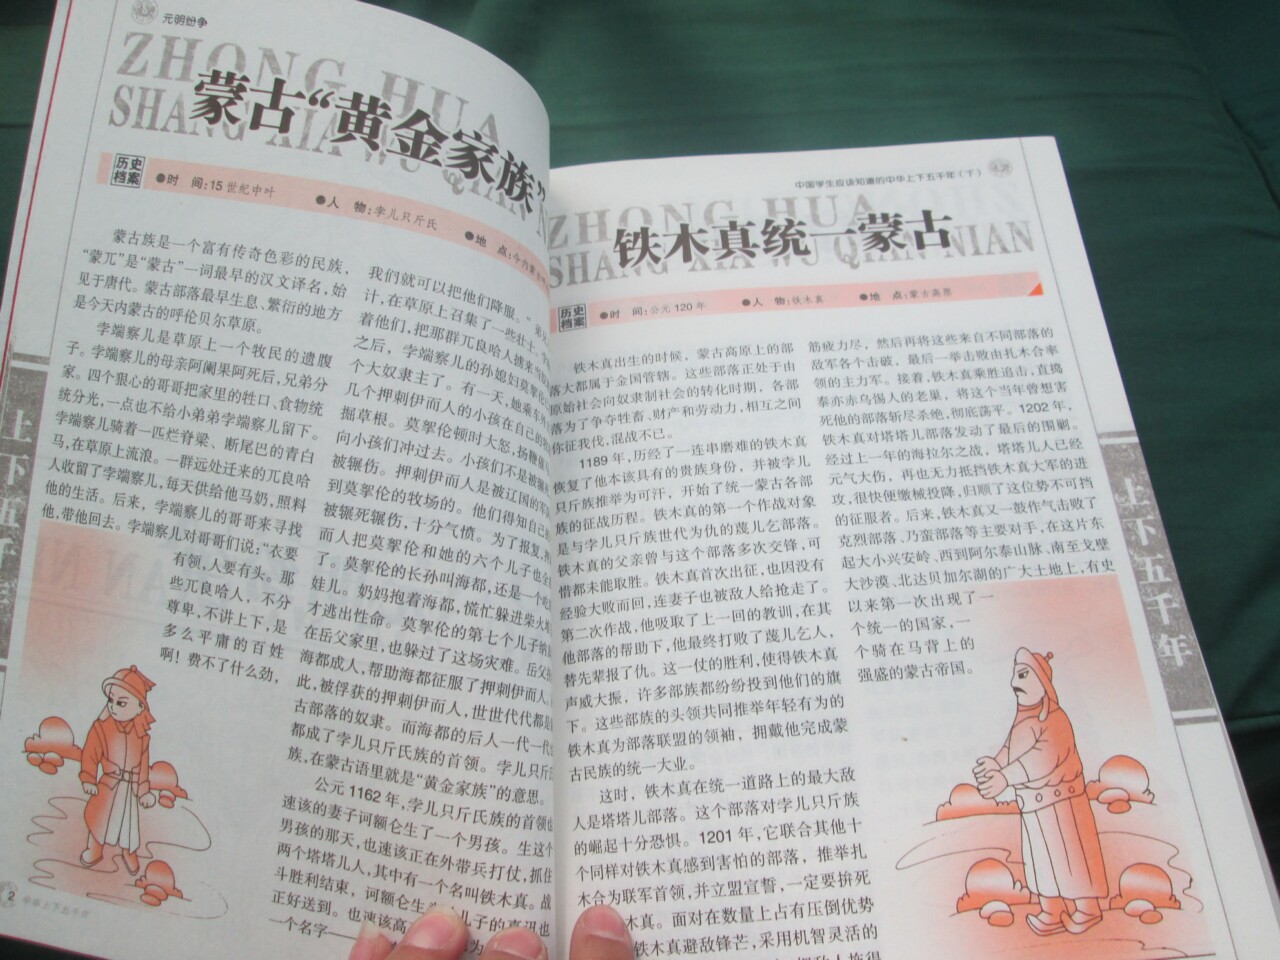 元明纷争
ZHONG HUA
SHANG XIA WU QIAN NIAN
蒙古“黄金家族”
历史
档案
●时 间:15世纪中叶 ●人 物:孛儿只斤氏 ●地 点:今内蒙
蒙古族是一个富有传奇色彩的民族，
“蒙兀”是“蒙古”一词最早的汉文译名，始
见于唐代。蒙古部落最早生息、繁衍的地方
是今天内蒙古的呼伦贝尔草原。
孛端察儿是草原上一个牧民的遗腹
子。孛端察儿的母亲阿阑果阿死后，兄弟分
家。四个狠心的哥哥把家里的牲口、食物统
统分光，一点也不给小弟弟孛端察儿留下。
孛端察儿骑着一匹烂脊梁、断尾巴的青白
马，在草原上流浪。一群远处迁来的兀良哈
人收留了孛端察儿，每天供给他马奶，照料
他的生活。后来，孛端察儿的哥哥来寻找
他，带他回去。孛端察儿对哥哥们说：“衣要
有领，人要有头。那
些兀良哈人，不分
尊卑，不讲上下，是
多么平庸的百姓
啊！费不了什么劲，
我们就可以把他们降服。”
计，在草原上召集了一些壮士，
着他们，把那群兀良哈人掳来
之后，孛端察儿的孙媳妇莫挐伦
个大奴隶主了。有一天，她乘车外
几个押刺伊而人的小孩在自己的牧
掘草根。莫挐伦顿时大怒，扬鞭催
向小孩们冲过去。小孩们不是被辗
被辗伤。押刺伊而人是被辽国的军
到莫挐伦的牧场的。他们得知自己的
被辗死辗伤，十分气愤。为了报复，押
而人把莫挐伦和她的六个儿子也全
了。莫挐伦的长孙叫海都，还是一个吃
娃儿。奶妈抱着海都，慌忙躲进柴火堆
才逃出性命。莫挐伦的第七个儿子纳
在岳父家里，也躲过了这场灾难。岳父把
海都成人，帮助海都征服了押刺伊而人。
此，被俘获的押刺伊而人，世世代代都是
古部落的奴隶。而海都的后人一代一代
都成了孛儿只斤氏族的首领。孛儿只斤
族，在蒙古语里就是“黄金家族”的意思。
公元1162年，孛儿只斤氏族的首领也
速该的妻子诃额仑生了一个男孩。生这个
男孩的那天，也速该正在外带兵打仗，抓住
两个塔塔儿人，其中有一个名叫铁木真。战
斗胜利结束，诃额仑生 儿子的喜讯也
正好送到。也速该高 为
一个名字——
2 中华上下五千年
上下五千年
中国学生应该知道的中华上下五千年（下）
ZHONG HUA
SHANG XIA WU QIAN NIAN
铁木真统一蒙古
历史
档案
●时 间:公元120年 ●人 物:铁木真 ●地 点:蒙古高原
铁木真出生的时候，蒙古高原上的部
落大都属于金国管辖。这些部落正处于由
原始社会向奴隶制社会的转化时期，各部
落为了争夺牲畜、财产和劳动力，相互之间
你征我伐，混战不已。
1189年，历经了一连串磨难的铁木真
恢复了他本该具有的贵族身份，并被孛儿
只斤族推举为可汗，开始了统一蒙古各部
族的征战历程。铁木真的第一个作战对象
是与孛儿只斤族世代为仇的蔑儿乞部落。
铁木真的父亲曾与这个部落多次交锋，可
惜都未能取胜。铁木真首次出征，也因没有
经验大败而回，连妻子也被敌人给抢走了。
第二次作战，他吸取了上一回的教训，在其
他部落的帮助下，他最终打败了蔑儿乞人，
替先辈报了仇。这一仗的胜利，使得铁木真
声威大振，许多部族都纷纷投到他们的旗
下。这些部族的头领共同推举年轻有为的
铁木真为部落联盟的领袖，拥戴他完成蒙
古民族的统一大业。
这时，铁木真在统一道路上的最大敌
人是塔塔儿部落。这个部落对孛儿只斤族
的崛起十分恐惧。1201年，它联合其他十
个同样对铁木真感到害怕的部落，推举扎
木合为联军首领，并立盟宣誓，一定要拚死
木真。面对在数量上占有压倒优势
铁木真避敌锋芒，采用机智灵活的
把敌人拖得
筋疲力尽，然后再将这些来自不同部落的
敌军各个击破，最后一举击败由扎木合率
领的主力军。接着，铁木真乘胜追击，直捣
泰亦赤乌惕人的老巢，将这个当年曾想害
死他的部落斩尽杀绝，彻底荡平。1202年，
铁木真对塔塔儿部落发动了最后的围剿。
经过上一年的海拉尔之战，塔塔儿人已经
元气大伤，再也无力抵挡铁木真大军的进
攻，很快便缴械投降，归顺了这位势不可挡
的征服者。后来，铁木真又一鼓作气击败了
克烈部落、乃蛮部落等主要对手，在这片东
起大小兴安岭、西到阿尔泰山脉、南至戈壁
大沙漠、北达贝加尔湖的广大土地上，有史
以来第一次出现了一
个统一的国家，一
个骑在马背上的
强盛的蒙古帝国。
上下五千年